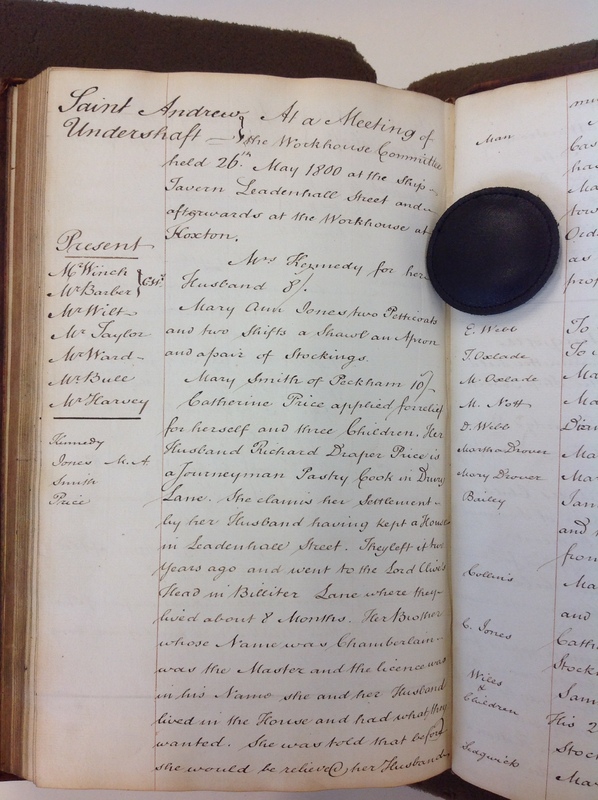 Saint Andrew
Undershaft
At a Meeting of
the Workhouse Committee
held 26th May 1800 at the Ship
Tavern Leadenhall Street and
afterwards at the Workhouse at
Hoxton.
Present
Mr Winch
Mr Barber
Mr Wilt
Mr Taylor
Mr Ward
Mr Bull
Mr Harvey
Kennedy
Jones M. A.
Smith
Price
Mrs Kennedy for her
Husband 8/.
Mary Ann Jones two Petticoats
and two Shifts a Shawl an Apron
and a pair of Stockings.
Mary Smith of Peckham 10/
Catherine Price applied for relief
for herself and three Children. Her
Husband Richard Draper Price is
a Journeyman Pastry Cook in Drury
Lane. She claims her Settlement
by her Husband having kept a House
in Leadenhall Street. They left it two
Years ago and went to the Lord Clive's
Head in Billiter Lane where they
lived about 8 Months. Her Brother
whose Name was Chamberlain
was the Master and the licence was
in his Name she and her Husband
lived in the House and had what they
wanted. She was told that before
she would be relieved her Husband
Man
E. Webb
T. Oxlade
M. Oxlade
M. Nott
D. Webb
Martha Drover
Mary Drover
Bailey
Collins
C. Jones
Wiles
&
Children
Sedgwick
To
and
and
His 2